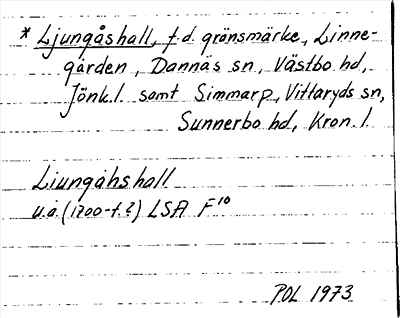 * Ljungåshall, f.d. gränsmärke, Linne-
gården, Dannäs sn, Västbo hd,
Jönk.l. samt Simmarp, Vittaryds sn,
Sunnerbo hd, Kron.l.
Liungåhshall
u.å. (1700-t.?) LSA F10
POL 1973